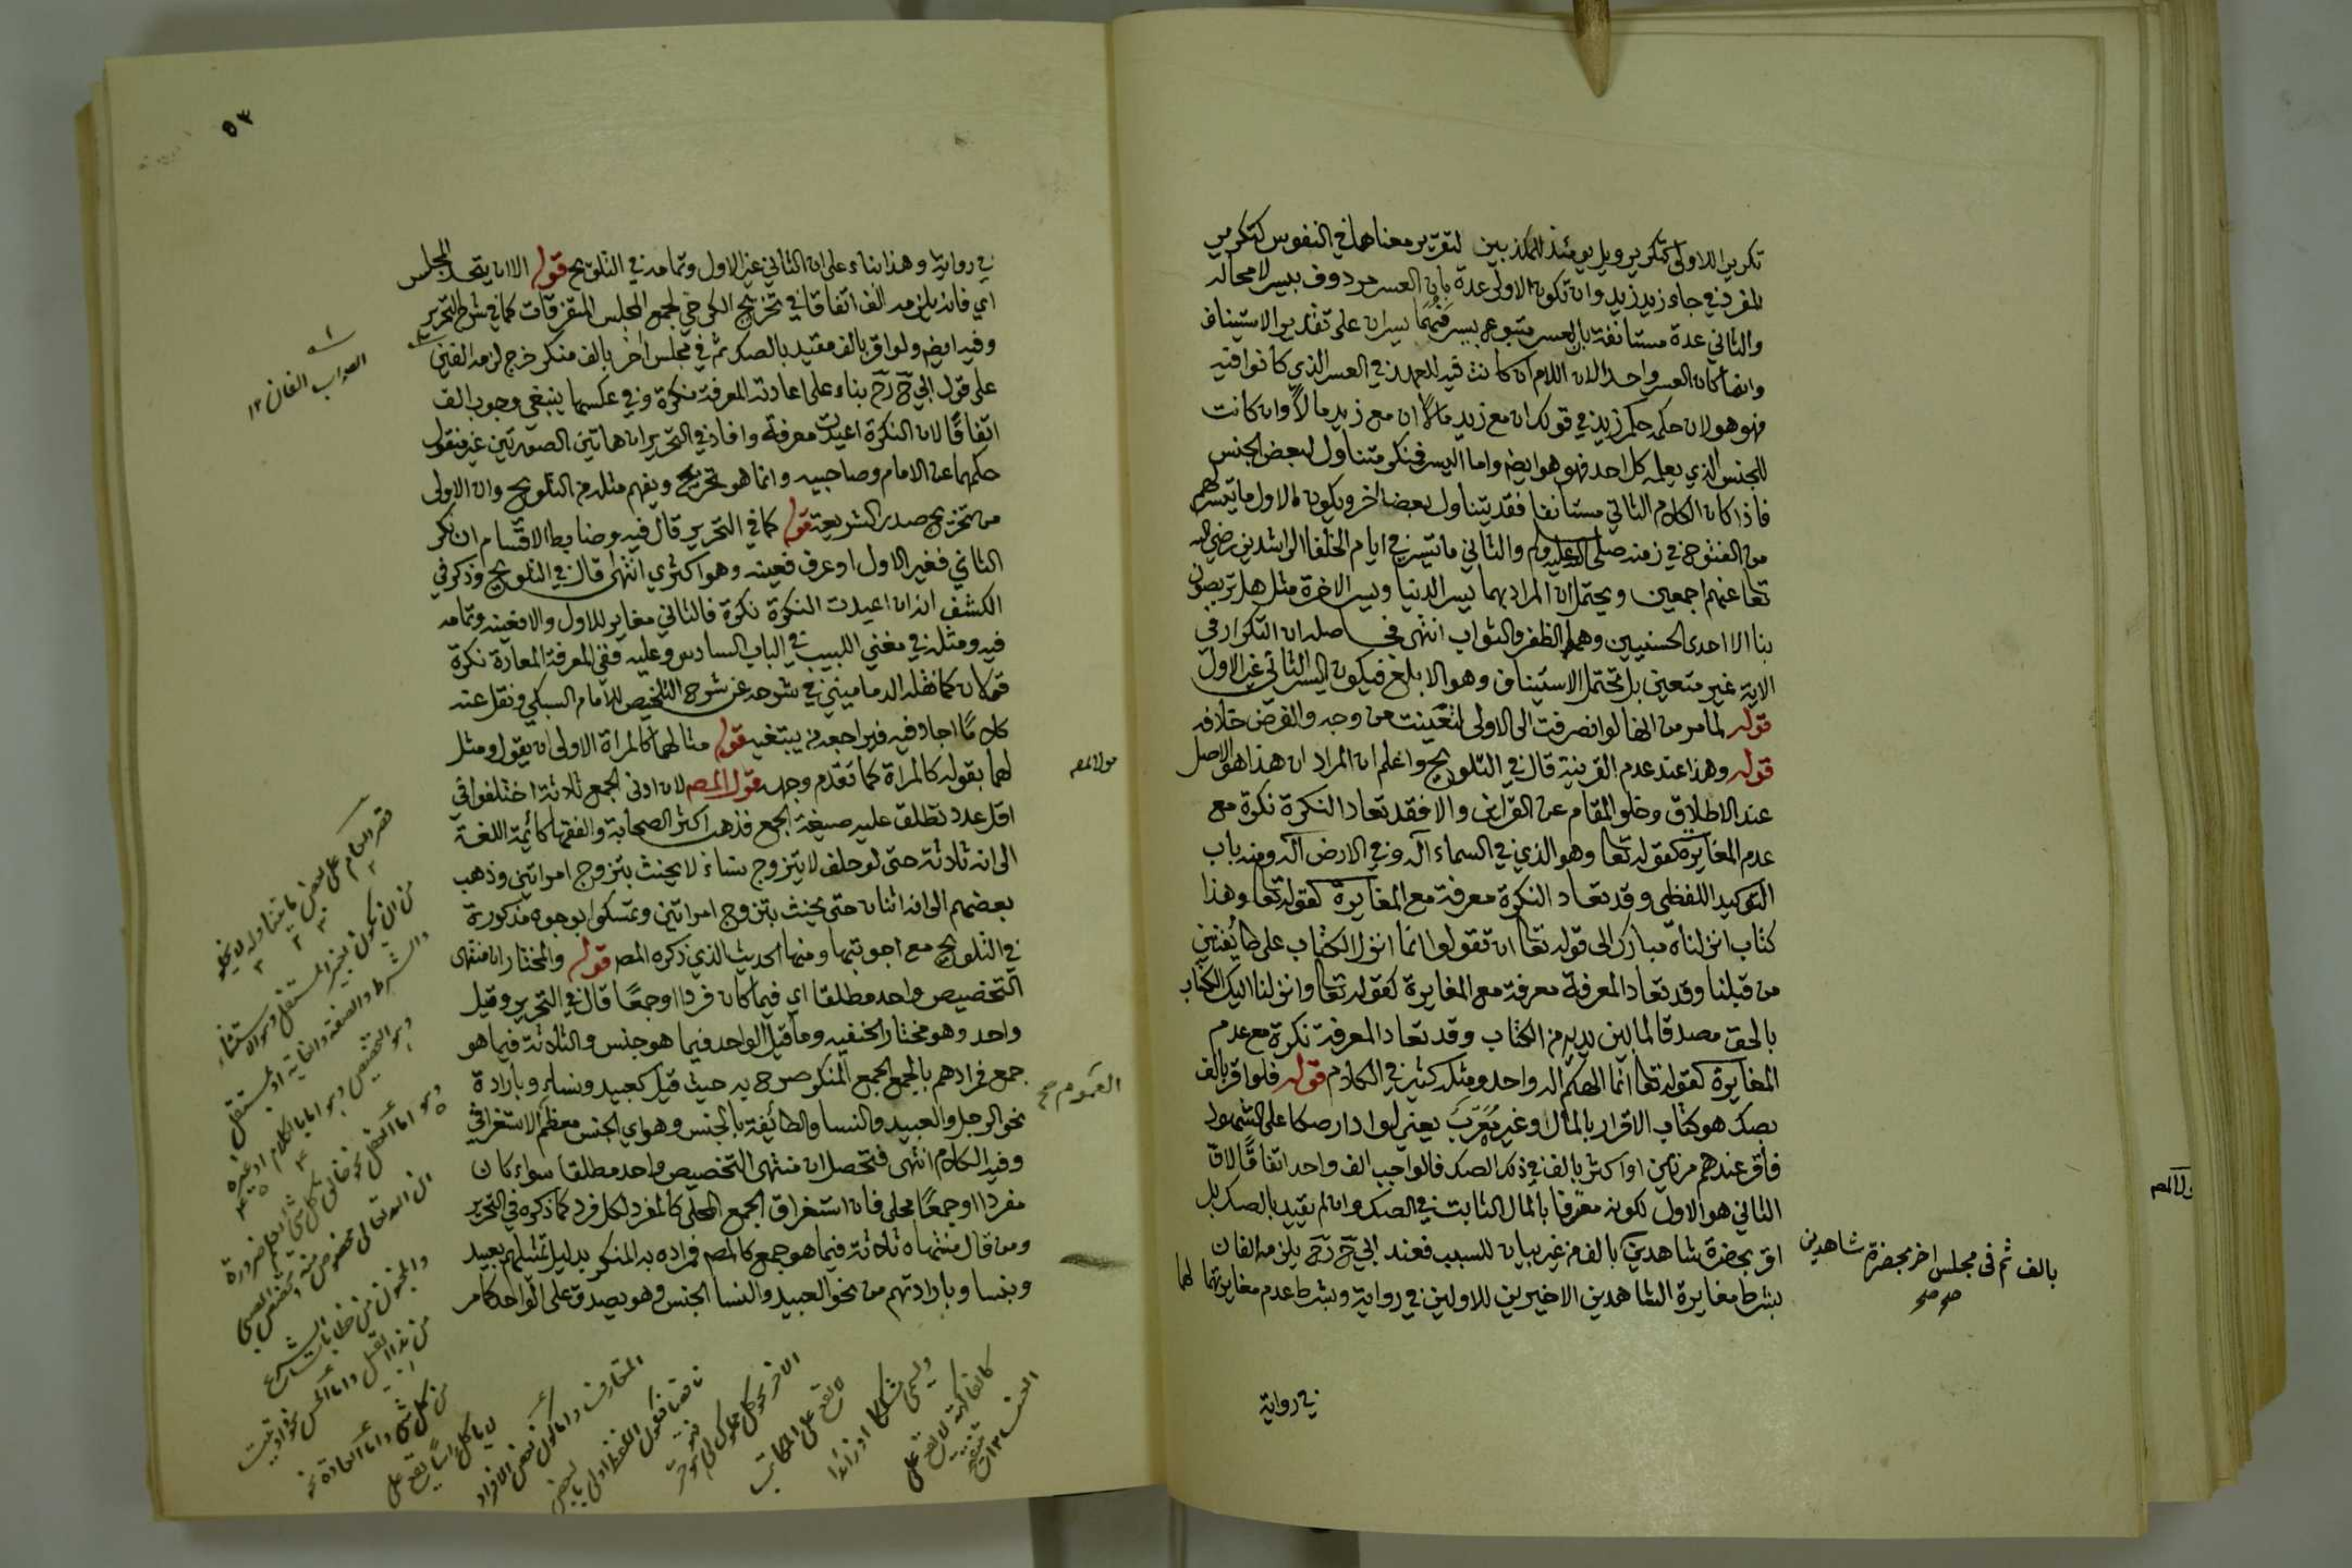 تكرير للاولى كتكرير ويل يومئذ للمكذبين لتقرير معناها في النفوس كتكرير
المفرد في جاء زيد زيد وان تكون الاولى عدة بان العسر مردوف بيسر لا محالة
والثاني عدة مستانفة بان العسر متبوع بيسر فهما يسران على تقدير الاستيناف
وانما كان العسر واحدا لان اللام ان كانت فيه للعهد في العسر الذي كانوا فيه
فهو هو لان حكمه حكم زيد في قولك ان مع زيد مالا ان مع زيد مالا وان كانت
للجنس الذي يعلمه كل احد فهو هو ايضا واما اليسر فمنكر متناول لبعض الجنس
فاذا كان الكلام الثاني مستانفا فقد يتناول بعضا اخر ويكون الاول ما تيسر لهم
من الفتوح في زمنه صلى الله عليه وسلم والثاني ما تيسر في ايام الخلفا الراشدين رضي الله
تعا عنهم اجمعين ويحتمل ان المراد بهما يسر الدنيا ويسر الاخرة مثل هل تربصون
بنا الا احدى الحسنيين وهما الظفر والثواب انتهى فحاصله ان التكرار في
الاية غير متعين بل تحتمل الاستيناف وهو الابلغ فيكون اليسر الثاني غير الاول
قوله لما مر من انها لو انصرفت الى الاولى لتعينت من وجه والفرض خلافه
قوله وهذا عند عدم القرينة قال في التلويح واعلم ان المراد ان هذا هو الاصل
عند الاطلاق وخلو المقام عن القراين والا فقد تعاد النكرة نكرة مع
عدم المغايرة كقوله تعا وهو الذي في السماء اله وفي الارض اله ومنه باب
التوكيد اللفظي وقد تعاد النكرة معرفة مع المغايرة كقوله تعا وهذا
كتاب انزلناه مبارك الى قوله تعا ان تقولوا انما انزل الكتاب على طايفتين
من قبلنا وقد تعاد المعرفة معرفة مع المغايرة كقوله تعا وانزلنا اليك الكتاب
بالحق مصدقا لما بين يديه من الكتاب وقد تعاد المعرفة نكرة مع عدم
المغايرة كقوله تعا انما الهكم اله واحد ومثله كثير في الكلام قوله فلو اقر بالف
بصك هو كتاب الاقرار بالمال وغيره مُعَرَّبٌ يعني لو ادار صكا على الشهود
فاقر عندهم مرتين او اكثر بالف في ذلك الصك فالواجب الف واحد اتفاقا لان
الثاني هو الاول لكونه معرفا بالمال الثابت في الصك وان لم يقيد بالصك بل
اقر بحضرة شاهدين بالف من غير بيان للسبب فعند ابي ح رح يلزمه الفان
بشرط مغايرة الشاهدين الاخيرين للاولين في رواية وبشرط عدم مغايرتهما لهما
بالف ثم في مجلس اخر بحضرة شاهدين
صح صح
في رواية
٥٣
في رواية وهذا بناء على ان الثاني غير الاول وتمامه في التلويح قوله الا ان يتحد المجلس
اي فانه يلزمه الف اتفاقا في تخريج الكرخي لجمع المجلس المتفرقات كما في شرح التحرير
وفيه ايضا ولو اقر بالف مقيد بالصك ثم في مجلس اخر بالف منكر خرج لزمه الفين
على قول ابي ح رح بناء على اعادته المعرفة نكرة وفي عكسها ينبغي وجوب الف
اتفاقا لان النكرة اعيدت معرفة وافاد في التحرير ان هاتين الصورتين غير منقول
حكمهما عن الامام وصاحبيه وانما هو تخريج ويفهم مثله من التلويح وان الاولى
من تخريج صدر الشريعة قوله كما في التحرير قال فيه وضابط الاقسام ان نكر
الثاني فغير الاول او عرف فعينه وهو اكثري انتهى قال في التلويح وذكر في
الكشف انه ان اعيدت النكرة نكرة فالثاني مغاير للاول والا فعينه وتمامه
فيه ومثله في مغني اللبيب في الباب السادس وعليه ففي المعرفة المعادة نكرة
قولان كما نقله الدماميني في شرحه عن شرح التلخيص للامام السبكي ونقل عنه
كلاما اجاد فيه فليراجعه من يبتغيه قوله مثالهما كالمراة الاولى ان يقول ومثل
لهما بقوله كالمراة كما تقدم وجهه قول المص لان ادنى الجمع ثلاثة اختلفوا في
اقل عدد تطلق عليه صيغة الجمع فذهب اكثر الصحابة والفقها كائمة اللغة
الى انه ثلاثة حتى لو حلف لا يتزوج نساء لا يحنث بتزوج امراتين وذهب
بعضهم الى انه اثنان حتى يحنث بتزوج امراتين وتمسكوا بوجوه مذكورة
في التلويح مع اجوبتها ومنها الحديث الذي ذكره المص قوله والمختار ان منتهى
التخصيص واحد مطلقا اي فيما كان فردا او جمعا قال في التحرير وقيل
واحد وهو مختار الحنفيه وما قيل الواحد فيما هو جنس والثلاثة فيما هو
جمع فمرادهم بالجمع الجمع المنكر صرح به حيث قيل كعبيد ونساء وبارادة
نحو الرجل والعبيد والنسا والطائفة بالجنس وهو اي الجنس معظم الاستغراقي
وفيه الكلام انتهى فتحصل ان منتهى التخصيص واحد مطلقا سواء كان
مفردا او جمعا محلى فان استغراق الجمع المحلى كالمفرد لكل فرد كما ذكره في التحرير
ومن قال منتهاه ثلاثة فيما هو جمع كالمص فمراده به المنكر بدليل تمثيلهم بعبيد
وبنسا وبارادتهم من نحو العبيد والنسا الجنس وهو يصدق على الواحد كما مر
الصواب الفان ١٢
العموم صح
قصر العام على بعض ما يتناوله لا يخلو
من ان يكون بغير المستقل وهو الاستثناء
والشرط والصفة والغاية او بمستقل
وهو التخصيص وهو اما بالكلام او غيره
وهو اما العقل نحو خالق كل شيء